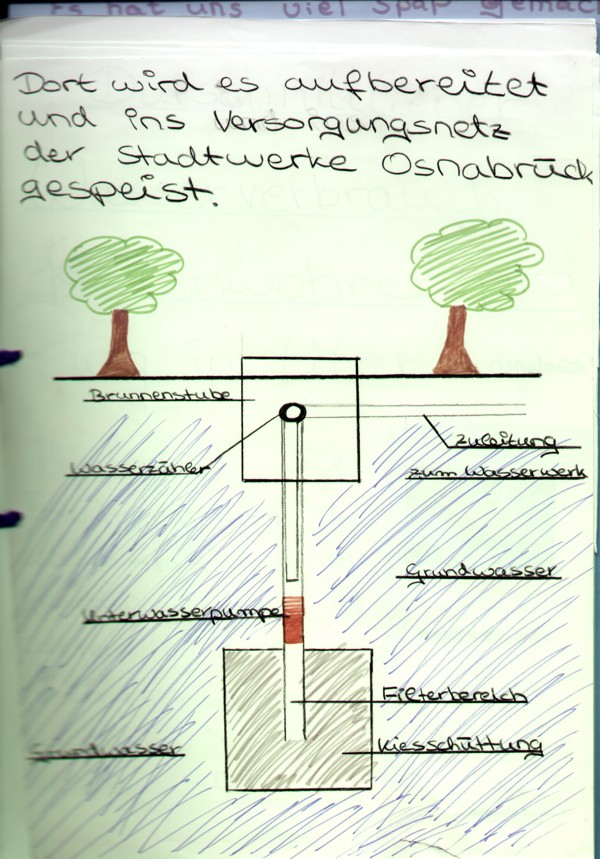 Es hat uns viel Spaß gemach
Dort wird es aufbereitet
und ins Versorgungsnetz
der Stadtwerke Osnabrück
gespeist.
Brunnenstube
Zuleitung
zum Wasserwerk
Wasserzähler
Grundwasser
Unterwasserpumpe
Filterbereich
Kiesschüttung
Grundwasser